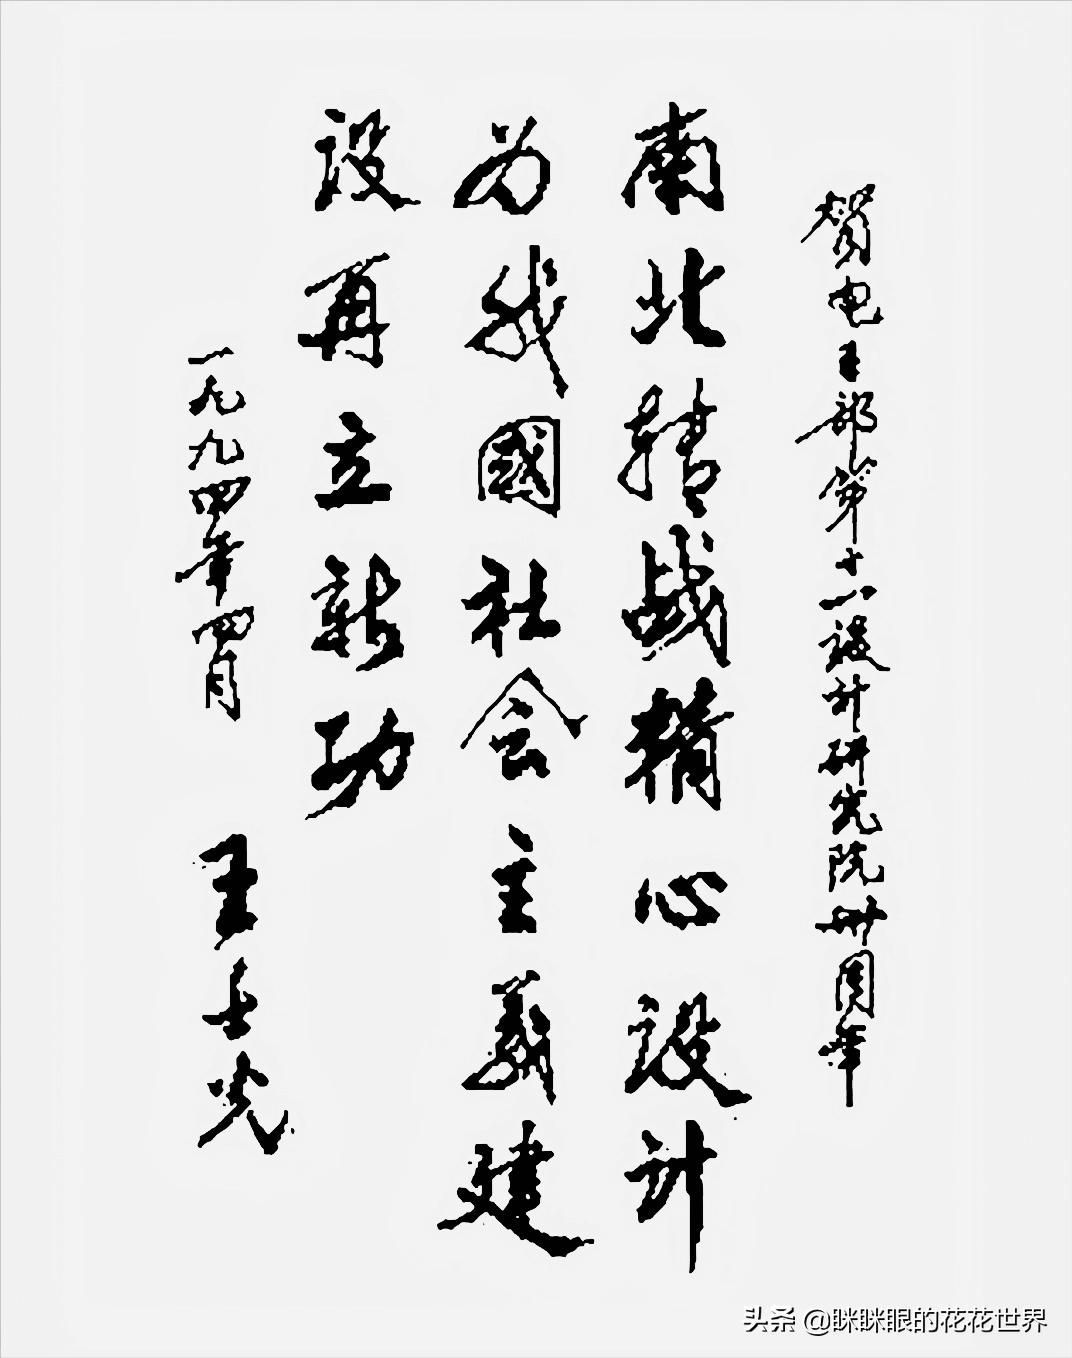 贺电子部第十一设计研究院卅周年
南北转战精心设计
为我國社会主義建
设再立新功
一九九四年四月 王士光
头条 @眯眯眼的花花世界